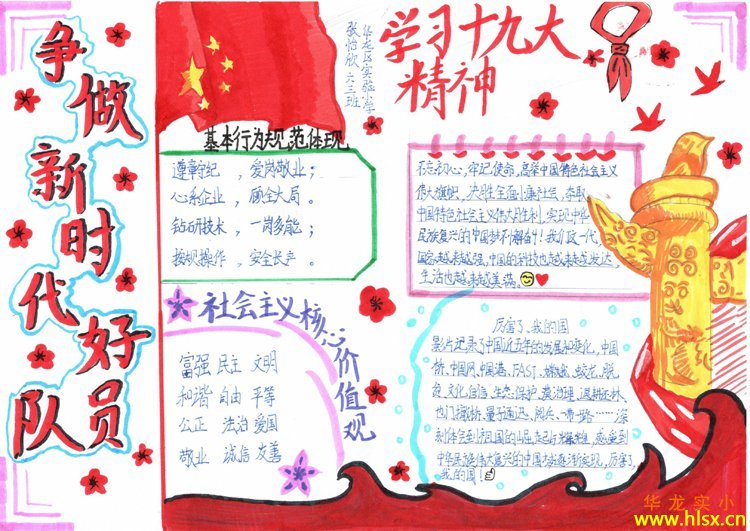 争做新时代好队员
学习十九大
精神
华龙区实验小学
张怡欣 六三班
基本行为规范体现
遵章守纪，爱岗敬业；
心系企业，顾全大局。
钻研技术，一岗多能；
按规操作，安全长产。
不忘初心，牢记使命，高举中国特色社会主义
伟大旗帜，决胜全面小康社会，夺取
中国特色社会主义伟大胜利，实现中华
民族复兴的中国梦不懈奋斗！我们这一代，
国家越来越强，中国的科技也越来越发达，
生活也越来越美满。
社会主义核心价值观
富强 民主 文明
和谐 自由 平等
公正 法治 爱国
敬业 诚信 友善
厉害了，我的国
影片记录了中国近五年的发展和变化，中国
桥、中国网、中国港、FAST、蛟龙、脱
贫、文化自信、生态保护
量子通讯、一带一路……深
刻体会到祖国的
中华民族伟大复兴的中国梦逐渐实现，厉害了，
我的国！
华龙实小
www.hlsx.cn